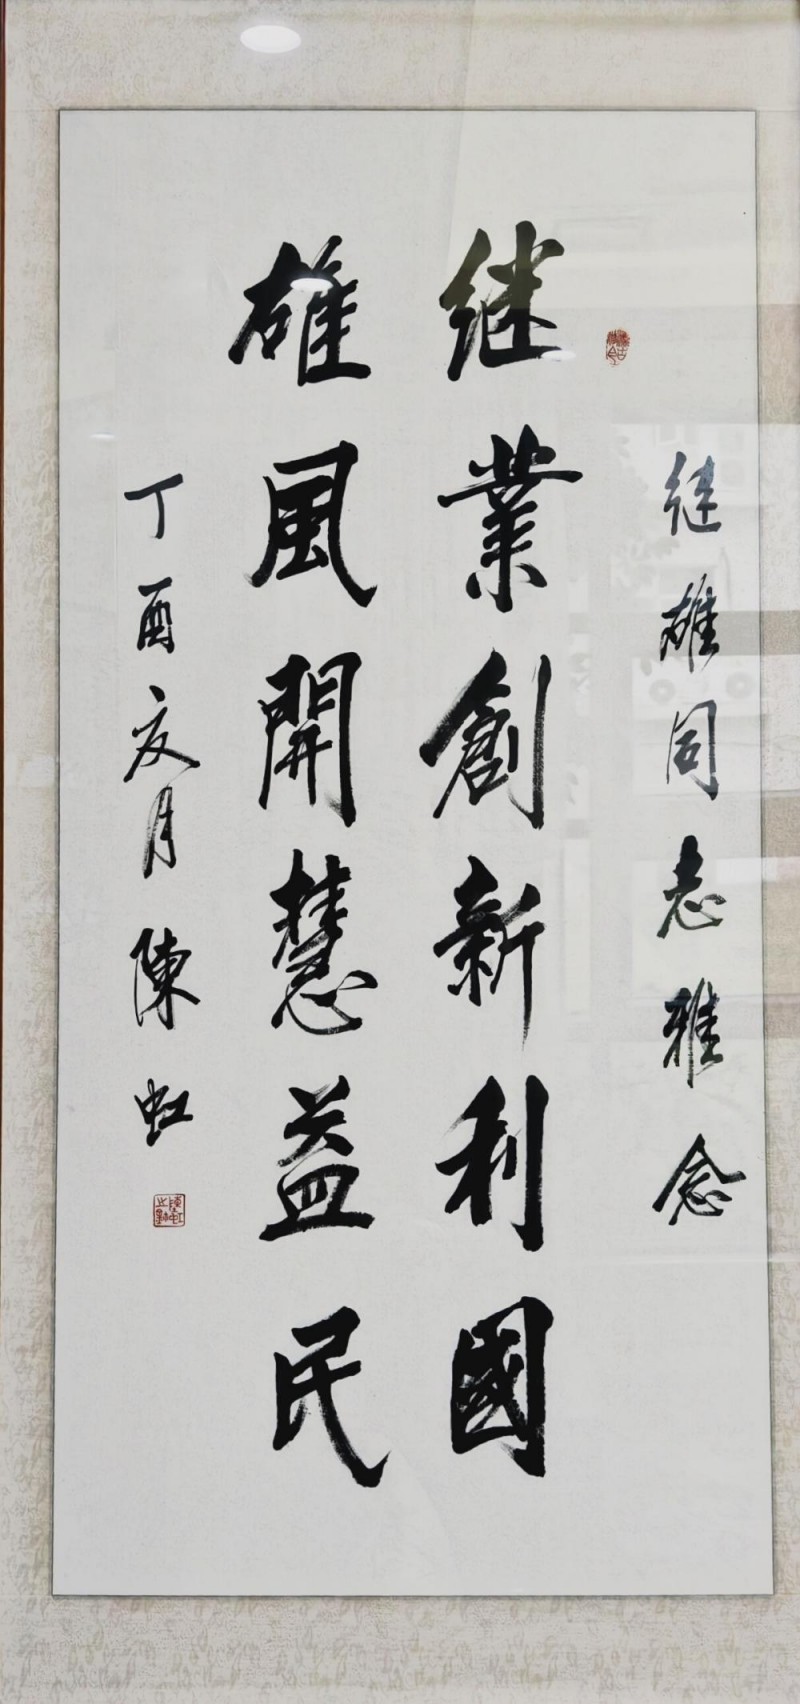 继雄同志雅念
继業創新利國
雄風開慧益民
丁酉夏月陳虹